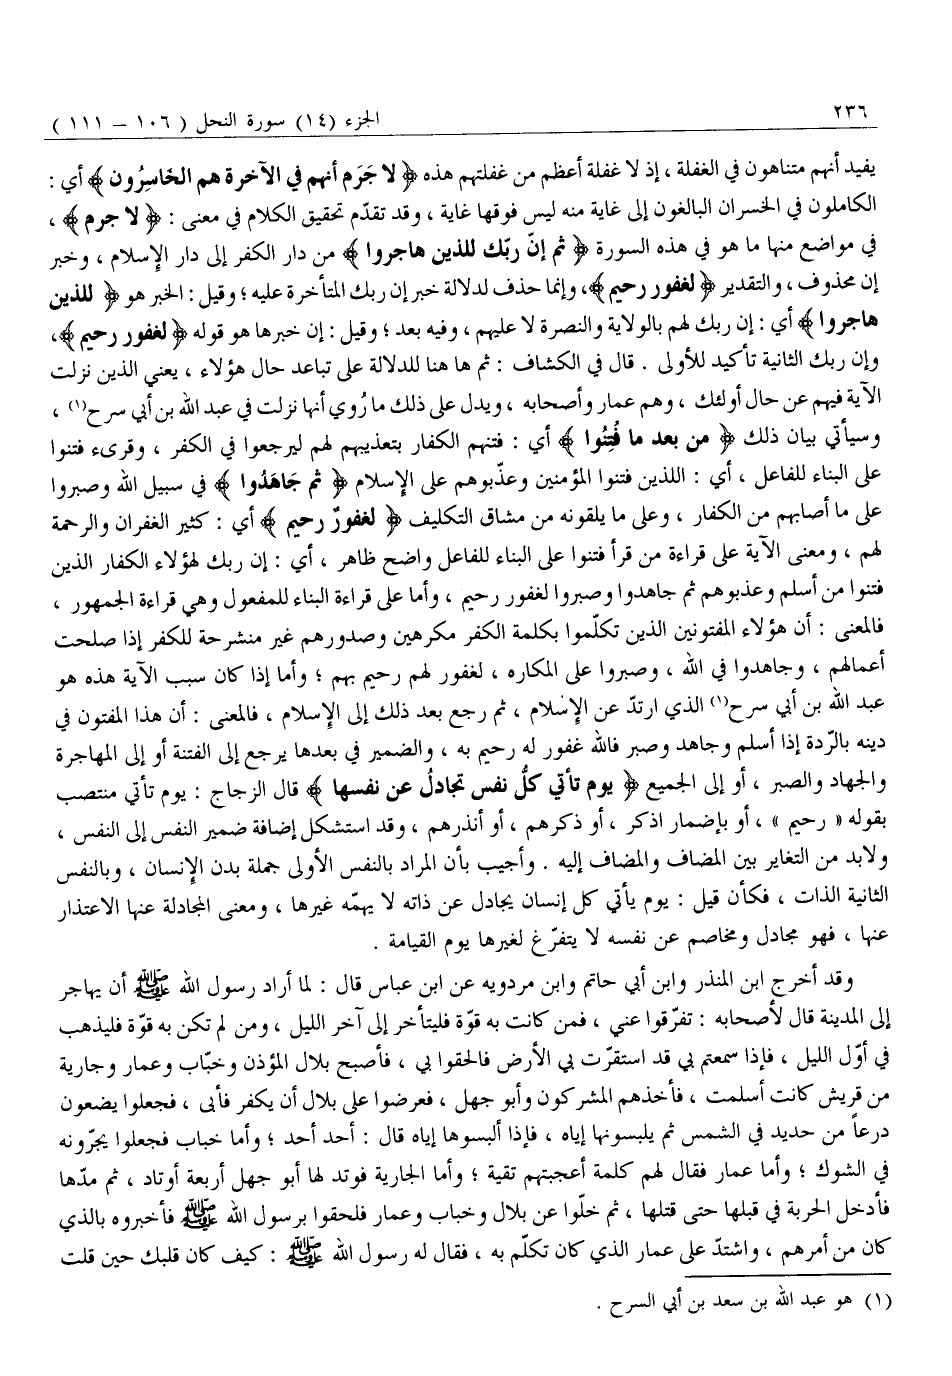 ٢٣٦
الجزء (١٤) سورة النحل ( ١٠٦ – ١١١ )
يفيد أنهم متناهون في الغفلة ، إذ لا غفلة أعظم من غفلتهم هذه ﴿ لا جَرَم أنهم في الآخرة هم الخَاسِرُون ﴾ أي :
الكاملون في الخسران البالغون إلى غاية منه ليس فوقها غاية ، وقد تقدّم تحقيق الكلام في معنى : ﴿ لا جرم ﴾ ،
في مواضع منها ما هو في هذه السورة ﴿ ثم إنّ ربّك للذين هاجروا ﴾ من دار الكفر إلى دار الإِسلام ، وخبر
إن محذوف ، والتقدير ﴿ لغفور رحيم ﴾، وإنما حذف لدلالة خبر إن ربك المتأخرة عليه ؛ وقيل : الخبر هو ﴿ للذين
هاجروا ﴾ أي : إن ربك لهم بالولاية والنصرة لا عليهم ، وفيه بعد ؛ وقيل : إن خبرها هو قوله ﴿ لغفور رحيم ﴾،
وإن ربك الثانية تأكيد للأولى . قال في الكشاف : ثم ها هنا للدلالة على تباعد حال هؤلاء ، يعني الذين نزلت
الآية فيهم عن حال أولئك ، وهم عمار وأصحابه ، ويدل على ذلك ما رُوي أنها نزلت في عبد الله بن أبي سرح(١) ،
وسيأتي بيان ذلك ﴿ من بعد ما فُتِنُوا ﴾ أي : فتنهم الكفار بتعذيبهم لهم ليرجعوا في الكفر ، وقرىء فتنوا
على البناء للفاعل ، أي : اللذين فتنوا المؤمنين وعذّبوهم على الإِسلام ﴿ ثم جَاهَدُوا ﴾ في سبيل الله وصبروا
على ما أصابهم من الكفار ، وعلى ما يلقونه من مشاق التكليف ﴿ لغفورٌ رحيم ﴾ أي : كثير الغفران والرحمة
لهم ، ومعنى الآية على قراءة من قرأ فتنوا على البناء للفاعل واضح ظاهر ، أي : إن ربك لهؤلاء الكفار الذين
فتنوا من أسلم وعذبوهم ثم جاهدوا وصبروا لغفور رحيم ، وأما على قراءة البناء للمفعول وهي قراءة الجمهور ،
فالمعنى : أن هؤلاء المفتونين الذين تكلّموا بكلمة الكفر مكرهين وصدورهم غير منشرحة للكفر إذا صلحت
أعمالهم ، وجاهدوا في الله ، وصبروا على المكاره ، لغفور لهم رحيم بهم ؛ وأما إذا كان سبب الآية هذه هو
عبد الله بن أبي سرح(١) الذي ارتدّ عن الإِسلام ، ثم رجع بعد ذلك إلى الإِسلام ، فالمعنى : أن هذا المفتون في
دينه بالرّدة إذا أسلم وجاهد وصبر فالله غفور له رحيم به ، والضمير في بعدها يرجع إلى الفتنة أو إلى المهاجرة
والجهاد والصبر ، أو إلى الجميع ﴿ يوم تأتي كلُّ نفس تجادلُ عن نفسها ﴾ قال الزجاج : يوم تأتي منتصب
بقوله « رحيم » ، أو بإضمار اذكر ، أو ذكرهم ، أو أنذرهم ، وقد استشكل إضافة ضمير النفس إلى النفس ،
ولابد من التغاير بين المضاف والمضاف إليه . وأجيب بأن المراد بالنفس الأولى جملة بدن الإِنسان ، وبالنفس
الثانية الذات ، فكأن قيل : يوم يأتي كل إنسان يجادل عن ذاته لا يهمّه غيرها ، ومعنى المجادلة عنها الاعتذار
عنها ، فهو مجادل ومخاصم عن نفسه لا يتفرّغ لغيرها يوم القيامة .
وقد أخرج ابن المنذر وابن أبي حاتم وابن مردويه عن ابن عباس قال : لما أراد رسول الله ﷺ أن يهاجر
إلى المدينة قال لأصحابه : تفرّقوا عني ، فمن كانت به قوّة فليتأخر إلى آخر الليل ، ومن لم تكن به قوّة فليذهب
في أوّل الليل ، فإذا سمعتم بي قد استقرّت بي الأرض فالحقوا بي ، فأصبح بلال المؤذن وخبّاب وعمار وجارية
من قريش كانت أسلمت ، فأخذهم المشركون وأبو جهل ، فعرضوا على بلال أن يكفر فأبى ، فجعلوا يضعون
درعاً من حديد في الشمس ثم يلبسونها إياه ، فإذا ألبسوها إياه قال : أحد أحد ؛ وأما خباب فجعلوا يجرّونه
في الشوك ؛ وأما عمار فقال لهم كلمة أعجبتهم تقية ؛ وأما الجارية فوتد لها أبو جهل أربعة أوتاد ، ثم مدّها
فأدخل الحربة في قبلها حتى قتلها ، ثم خلّوا عن بلال وخباب وعمار فلحقوا برسول الله ﷺ فأخبروه بالذي
كان من أمرهم ، واشتدّ على عمار الذي كان تكلّم به ، فقال له رسول الله ﷺ : كيف كان قلبك حين قلت
(١) هو عبد الله بن سعد بن أبي السرح .